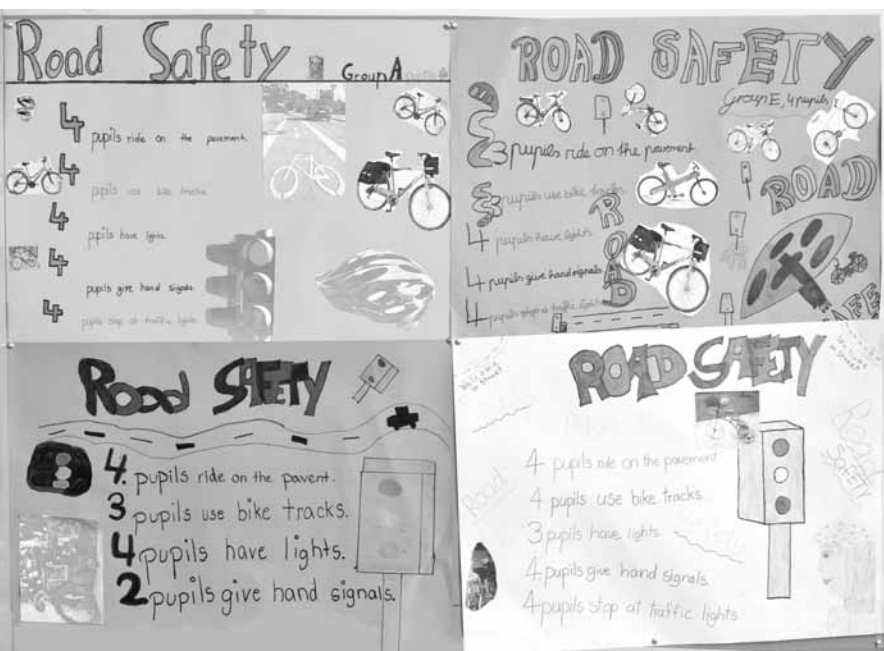 Road Safety
Group A
4 pupils ride on the pavement.
4 pupils use bike tracks.
4 pupils have lights.
4 pupils give hand signals.
4 pupils stop at traffic lights
ROAD SAFETY
Group E, 4 pupils
3 pupils ride on the pavement
3 pupils use bike tracks.
4 pupils have lights
4 pupils give hand signals.
4 pupils stop at traffic lights
ROAD
ROAD
Road SAFETY
4. pupils ride on the pavent.
3 pupils use bike tracks.
4 pupils have lights.
2 pupils give hand signals.
ROAD SAFETY
4 pupils ride on the pavement
4 pupils use bike tracks.
3 pupils have lights.
4 pupils give hand signals.
4 pupils stop at traffic lights.
Road
ROAD
SAFETY